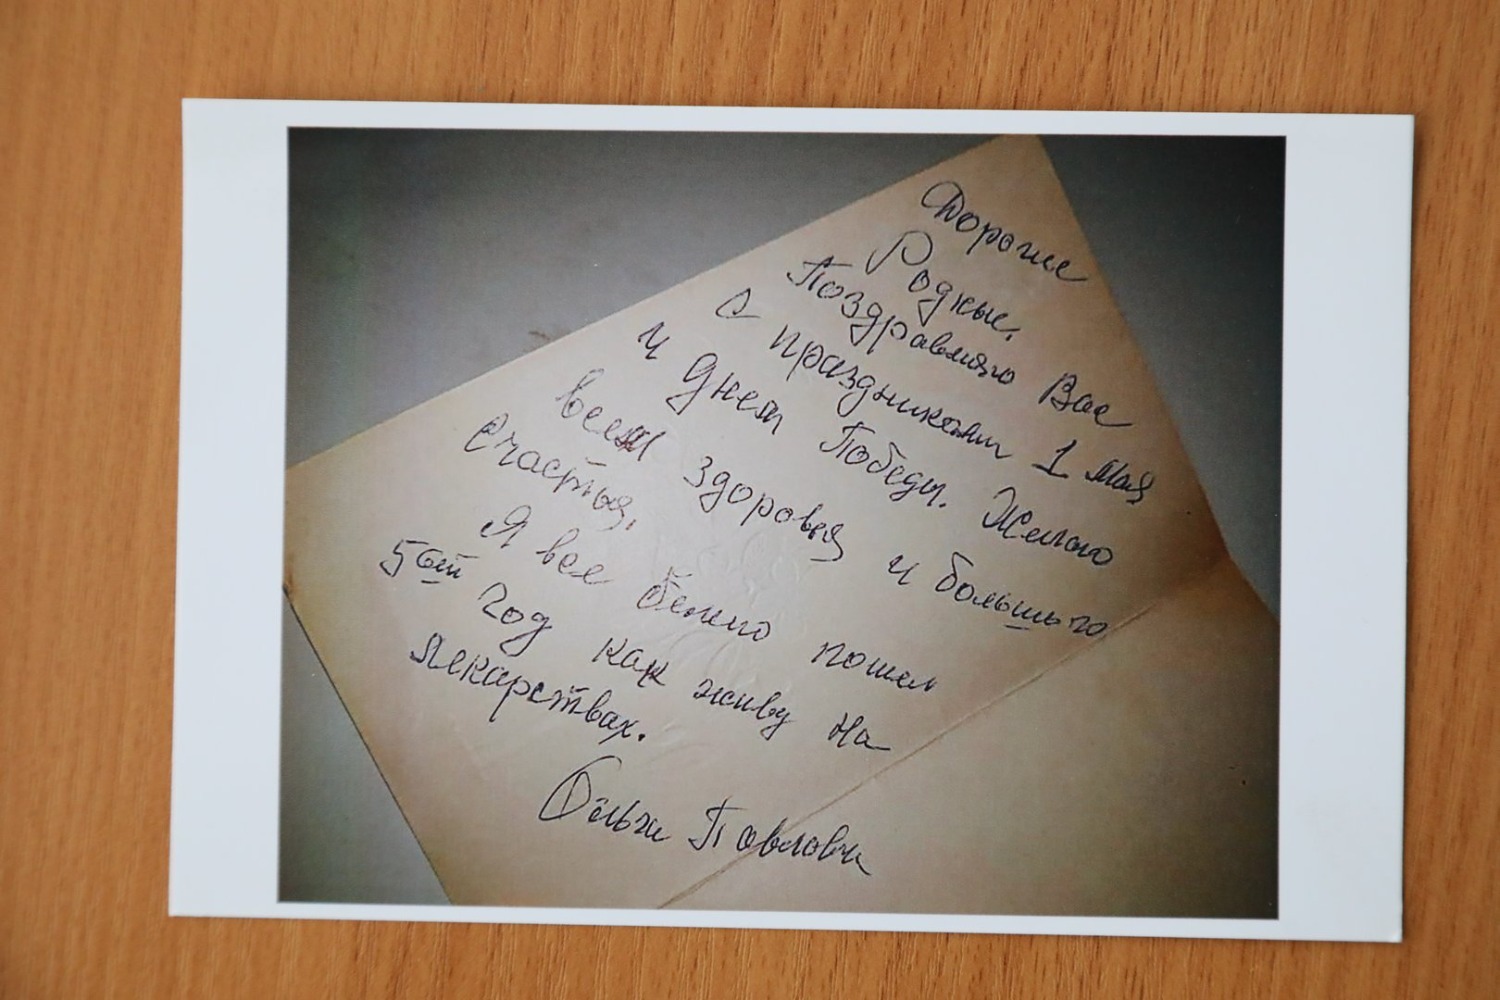 Дорогие
Родные,
Поздравляю Вас
с праздниками 1 Мая
и Днем Победы. Желаю
всем здоровья и большого
счастья,
Я все болею пошел
5ый год как живу на
лекарствах.
Ольга Павловна